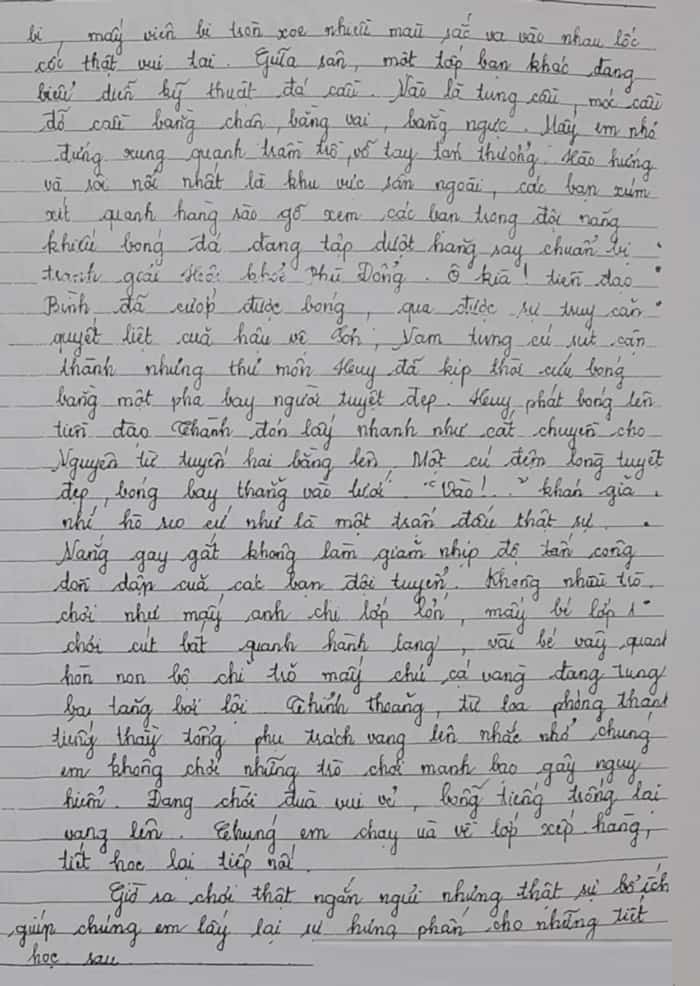 bi, mấy viên bi tròn xoe nhiều màu sắc va vào nhau lốc
cốc thật vui tai. Giữa sân, một tốp bạn khác đang
biểu diễn kỹ thuật đá cầu. Nào là tung cầu, móc cầu
đỡ cầu bằng chân, bằng vai, bằng ngực. Mấy em nhỏ
đứng xung quanh trầm trồ, vỗ tay tán thưởng. Hào hứng
và sôi nổi nhất là khu vực sân ngoài, các bạn xúm
xít quanh hàng rào gỗ xem các bạn trong đội năng
khiếu bóng đá đang tập dượt hăng say chuẩn bị
tranh giải Hội khoẻ Phù Đổng. Ô kìa! tiền đạo
Bình đã cướp được bóng, qua được sự truy cản
quyết liệt của hậu vệ Ích, Nam tung cú sút cận
thành nhưng thủ môn Huy đã kịp thời cứu bóng
bằng một pha bay người tuyệt đẹp. Huy phát bóng lên
tiền đạo Thành đón lấy nhanh như cắt chuyền cho
Nguyên từ tuyến hai băng lên. Một cú đệm lòng tuyệt
đẹp, bóng bay thẳng vào lưới. "Vào!.." khán giả
nhí hò reo cứ như là một trấn đấu thật sự.
Nắng gay gắt không làm giảm nhịp độ tấn công
dồn dập của các bạn đội tuyển. Không nhiều trò
chơi như mấy anh chị lớp lớn, mấy bé lớp 1
chơi cút bắt quanh hành lang, vài bé vây quanh
hòn non bộ chỉ trỏ mấy chú cá vàng đang tung
tăng bơi lội. Thỉnh thoảng, từ loa phóng thanh
tiếng thầy tổng phụ trách vang lên nhắc nhở chúng
em không chơi những trò chơi mạnh bạo gây nguy
hiểm. Đang chơi đùa vui vẻ, bỗng tiếng trống lại
vang lên. Chúng em chạy ùa về lớp xếp hàng,
tiết học lại tiếp nối.
Giờ ra chơi thật ngắn ngủi nhưng thật sự bổ ích
giúp chúng em lấy lại sự hưng phấn cho những tiết
học sau